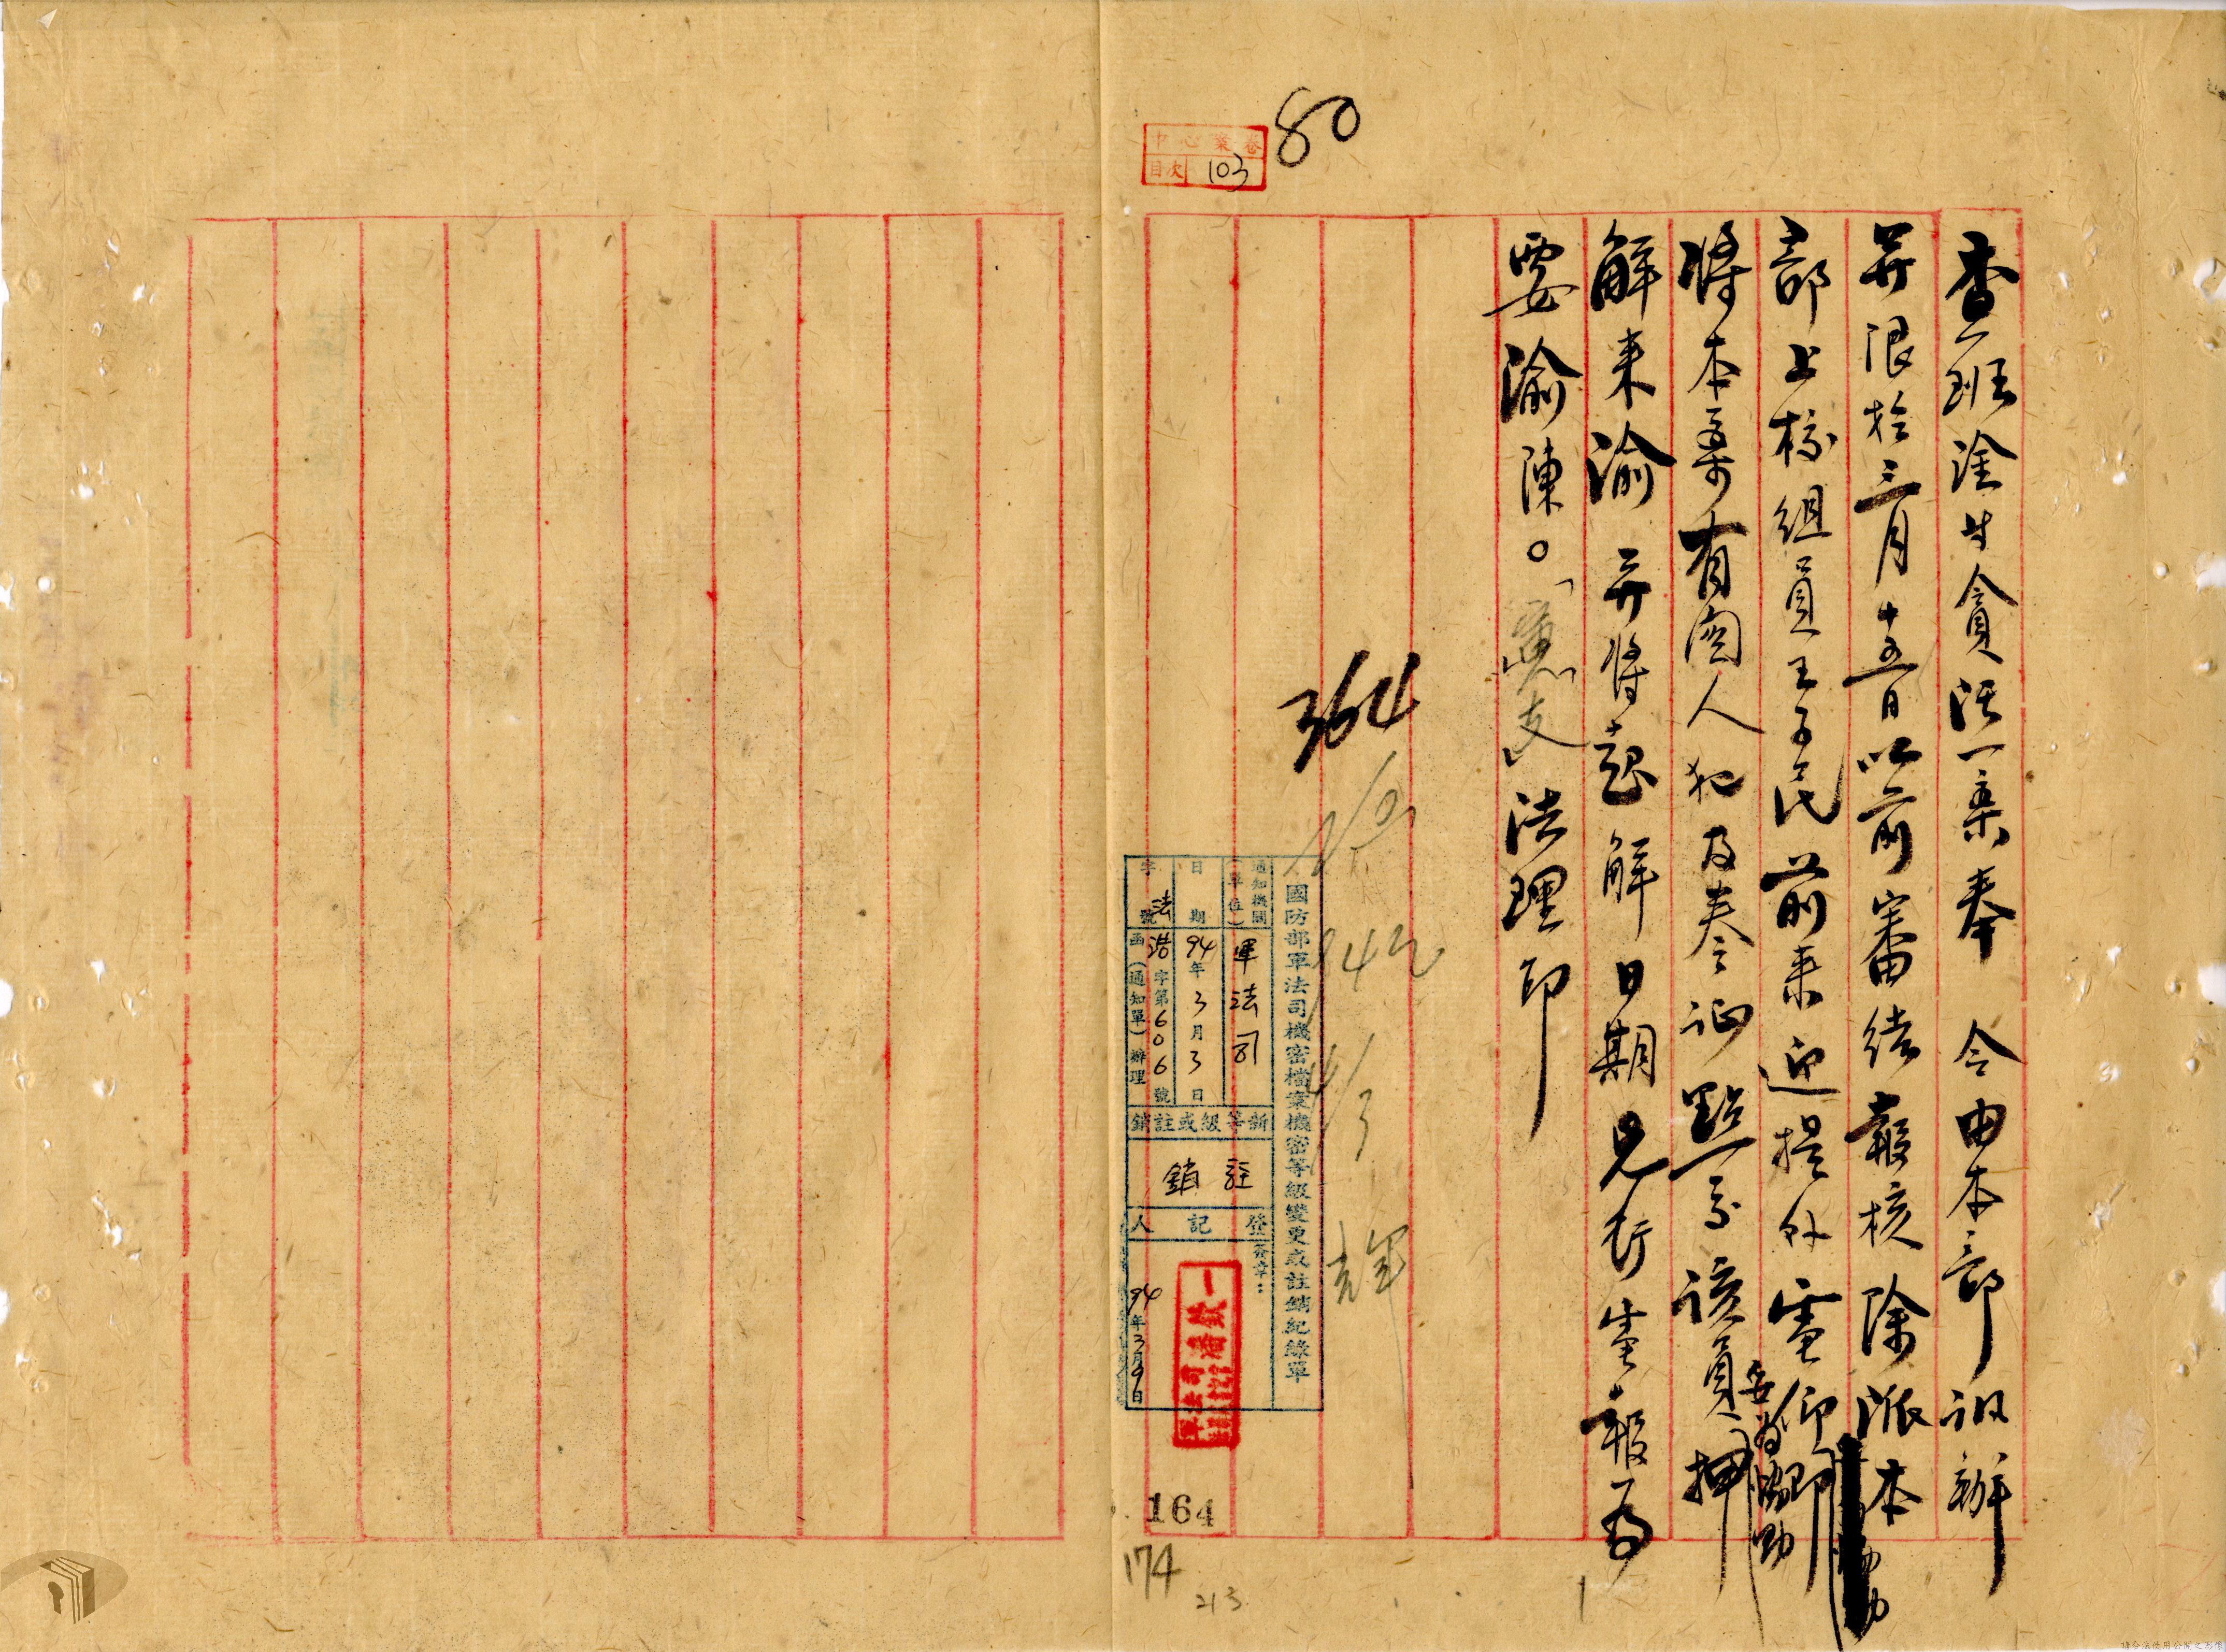 80
中心案卷
目次 103
查班淦等貪污一案奉 令由本部訊辦
并限於三月十五日以前審結報核除派本
部上校組員王子民前來迎提外電仰即
妥為協助
將本案有關人犯及卷證點交該員押
解來渝并將起解日期見行電報為
要渝陳。支法理印
364
國防部軍法司機密檔案機密等級變更或註銷紀錄單
通知機關(單位) 軍法司
日期 94年3月3日
字號 法浩字第6066號函(通知單)辦理
新等級或註銷
註銷
登記人
簽章:
94年3月9日
164
174
213